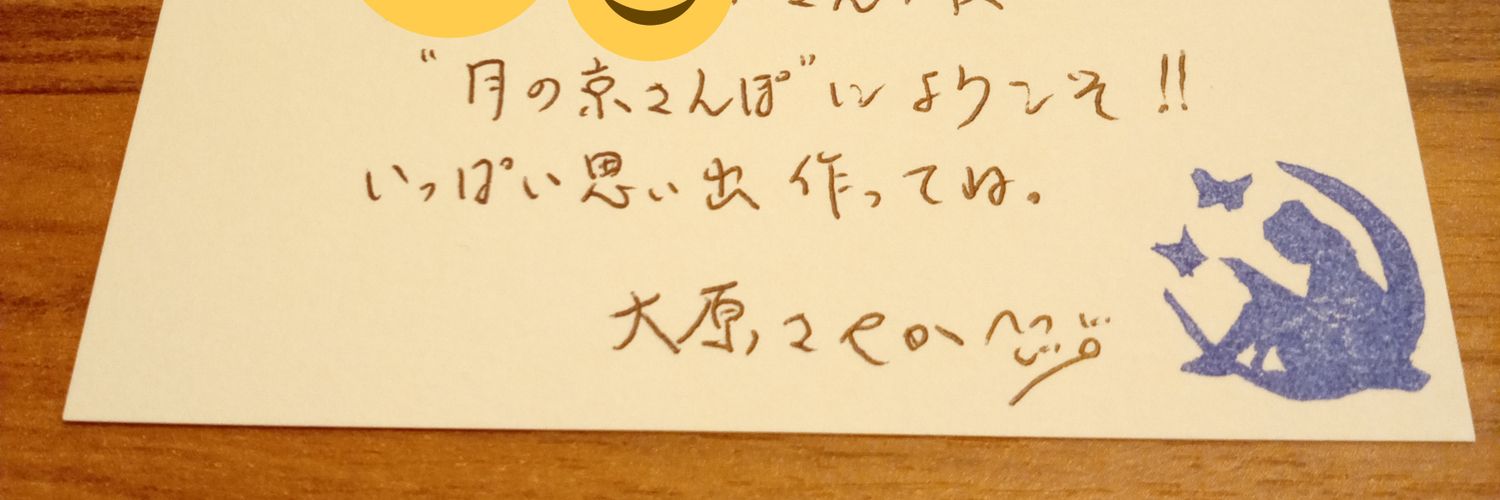 "月の京さんぽ"にようこそ!!
いっぱい思い出作ってね。
大原さやか